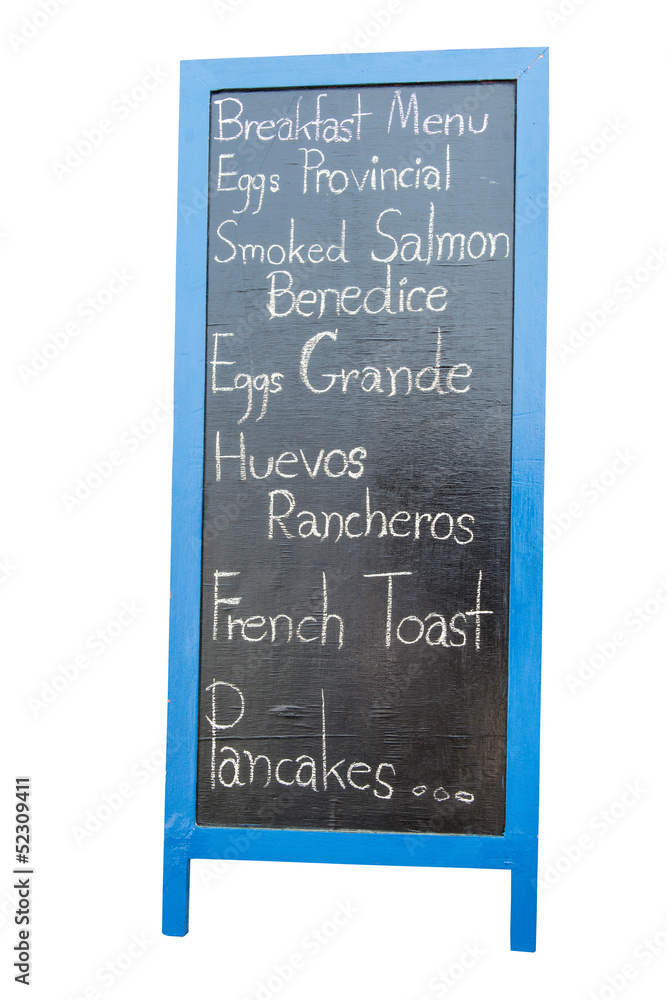 Breakfast Menu
Eggs Provincial
Smoked Salmon
Benedice
Eggs Grande
Huevos
Rancheros
French Toast
Pancakes ...
Adobe Stock | #52309411